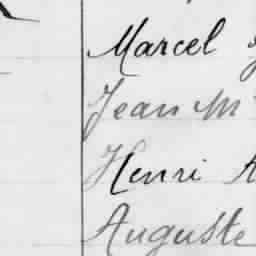 Marcel
Jean M
Henri A
Auguste